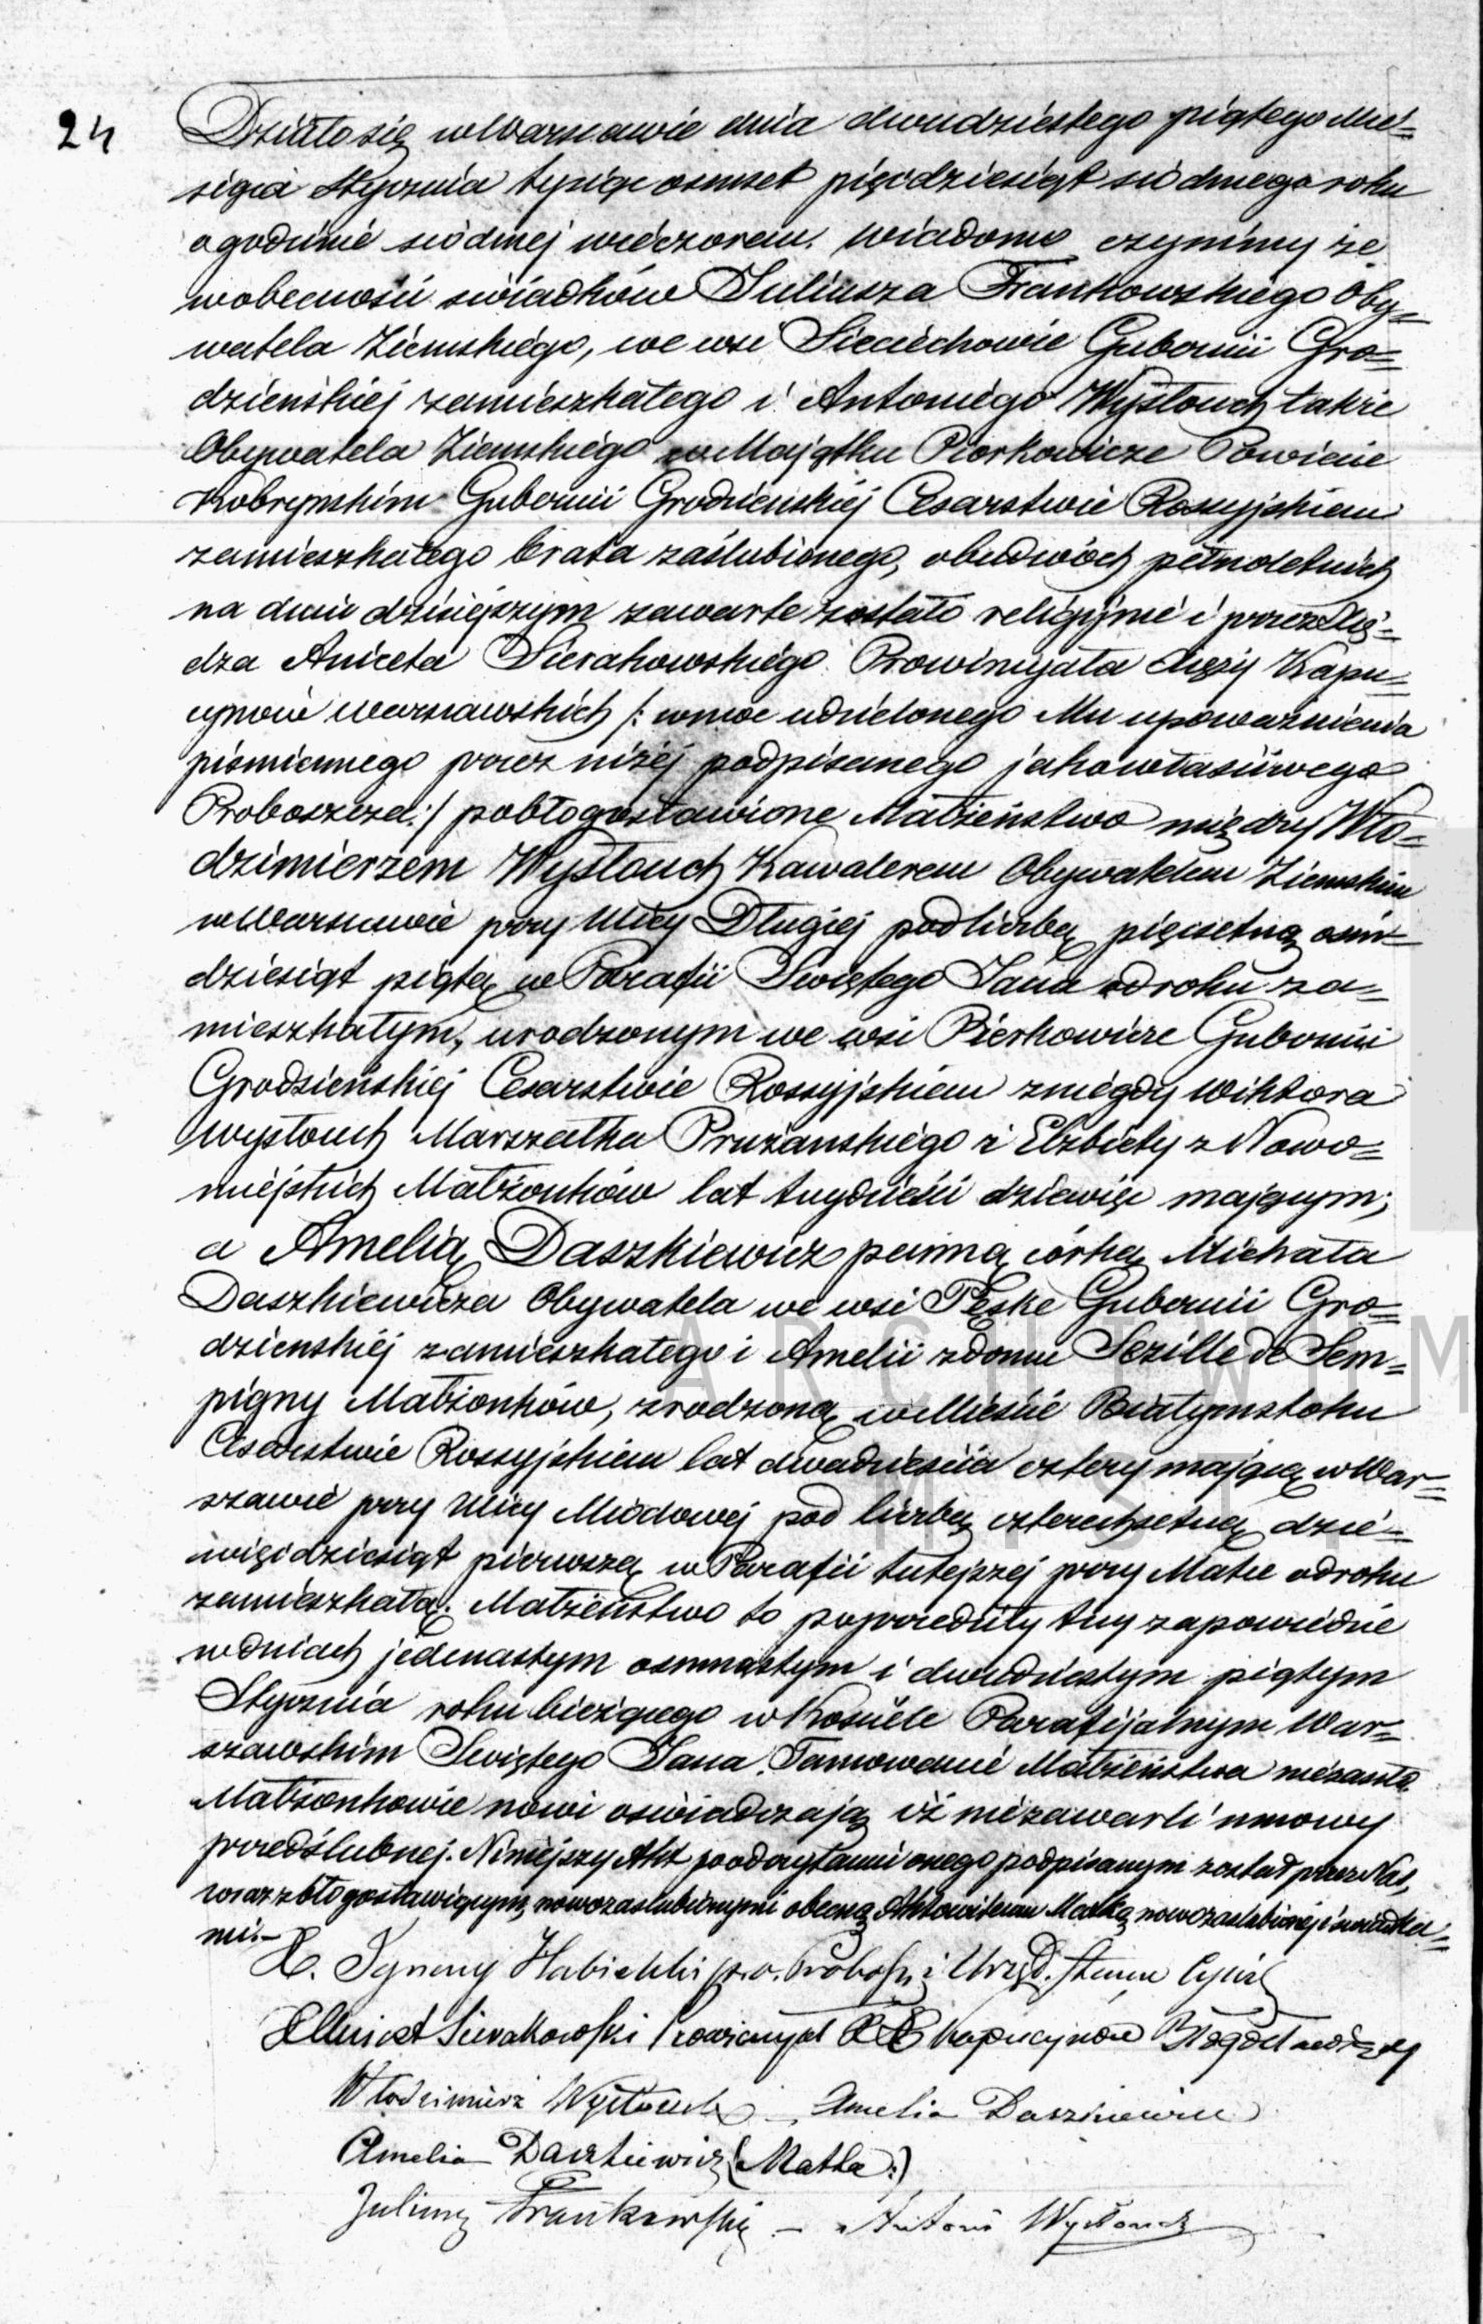 24
Działo się w Warszawie dnia dwudziestego piątego Mie=
siąca Stycznia tysiąc osmset pięćdziesiąt siódmego roku
o godzinie siódmej wieczorem. Wiadomo czynimy że
w obecności świadków Juliusza Frankowskiego Oby=
watela Ziemskiego, we wsi Sieciechowie Gubernii Gro=
dzieńskiej zamieszkałego i Antoniego Wysłouch także
Obywatela Ziemskiego w Majątku Piorkowicze Powiecie
Kobryńskim Gubernii Grodzieńskiej Cesarstwie Rossyjskiem
zamieszkałego brata zaślubionego, obudwóch pełnoletnich
na dniu dzisiejszym zawarte zostało religijnie i przez Xię=
dza Aniceta Sierakowskiego Prowincyała Xięży Kapu=
cynów warszawskich /: w moc udzielonego Mu upoważnienia
piśmiennego przez niżej podpisanego jako właściwego
Proboszcza :/ pobłogosławione Małżeństwo między Wło=
dzimierzem Wysłouch Kawalerem Obywatelem Ziemskim
w Warszawie przy Ulicy Długiej pod liczbą pięćsetną ośm=
dziesiąt piątą w Parafii Świętego Jana od roku za=
mieszkałym, urodzonym we wsi Pierkowicze Gubernii
Grodzieńskiej Cesarstwie Rossyjskiem z niegdy Wiktora
Wysłouch Marszałka Prużańskiego i Elżbiety z Nowo=
miejskich Małżonków lat trzydzieści dziewięć mającym;
a Amelią Daszkiewicz panną córką Michała
Daszkiewicza Obywatela we wsi Pęske Gubernii Gro=
dzieńskiej zamieszkałego i Amelii z domu Sezille de Sem=
pigny Małżonków, zrodzoną w Mieście Białymstoku
Cesarstwie Rossyjskiem lat dwadzieścia cztery mającą w War=
szawie przy Ulicy Miodowej pod liczbą czterechsetną dzie=
więćdziesiąt pierwszą w Parafii tutejszej przy Matce od roku
zamieszkałą. Małżeństwo to poprzedziły trzy zapowiedzie
w dniach jedenastym osmnastym i dwudziestym piątym
Stycznia roku bieżącego w Kościele Parafijalnym War=
szawskim Świętego Jana. Tamowanie Małżeństwa niezaszło
Małżonkowie nowi oświadczają iż niezawarli umowy
przedślubnej. Niniejszy Akt po odczytaniu onego podpisanym został przez Nas,
wraz z błogosławiącym, nowozaślubionymi obecną Aktowi temu Matką nowozaślubionej i świadka=
mi.–
X. Ignacy p.o. Probosz. i Urzęd. Stanu Cywil
X Anicet Sierakowski Prowincyał Kapucynów Błogosławiący
Włodzimierz Wysłouch – Amelia Daszkiewicz
Amelia Daszkiewicz (Matka:)
Juliusz Frankowski – Antoni Wysłouch
ARCHIWUM
M ST